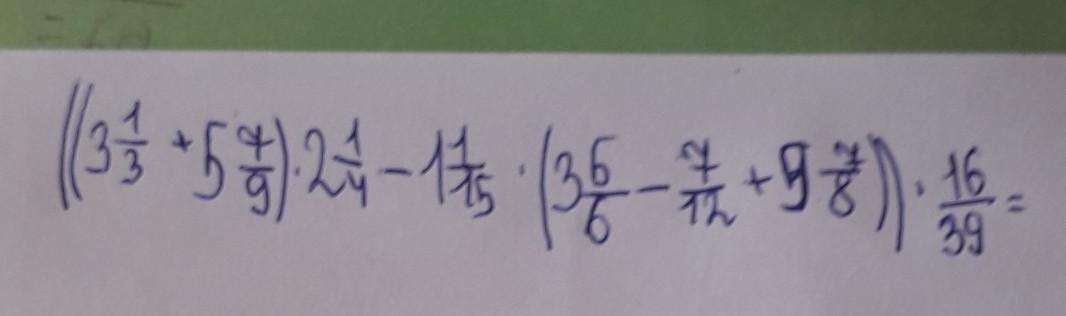 ((3 1/3 + 5 7/9) · 2 1/4 − 1 1/15 · (3 5/6 − 7/12 + 9 7/8)) · 16/39 =